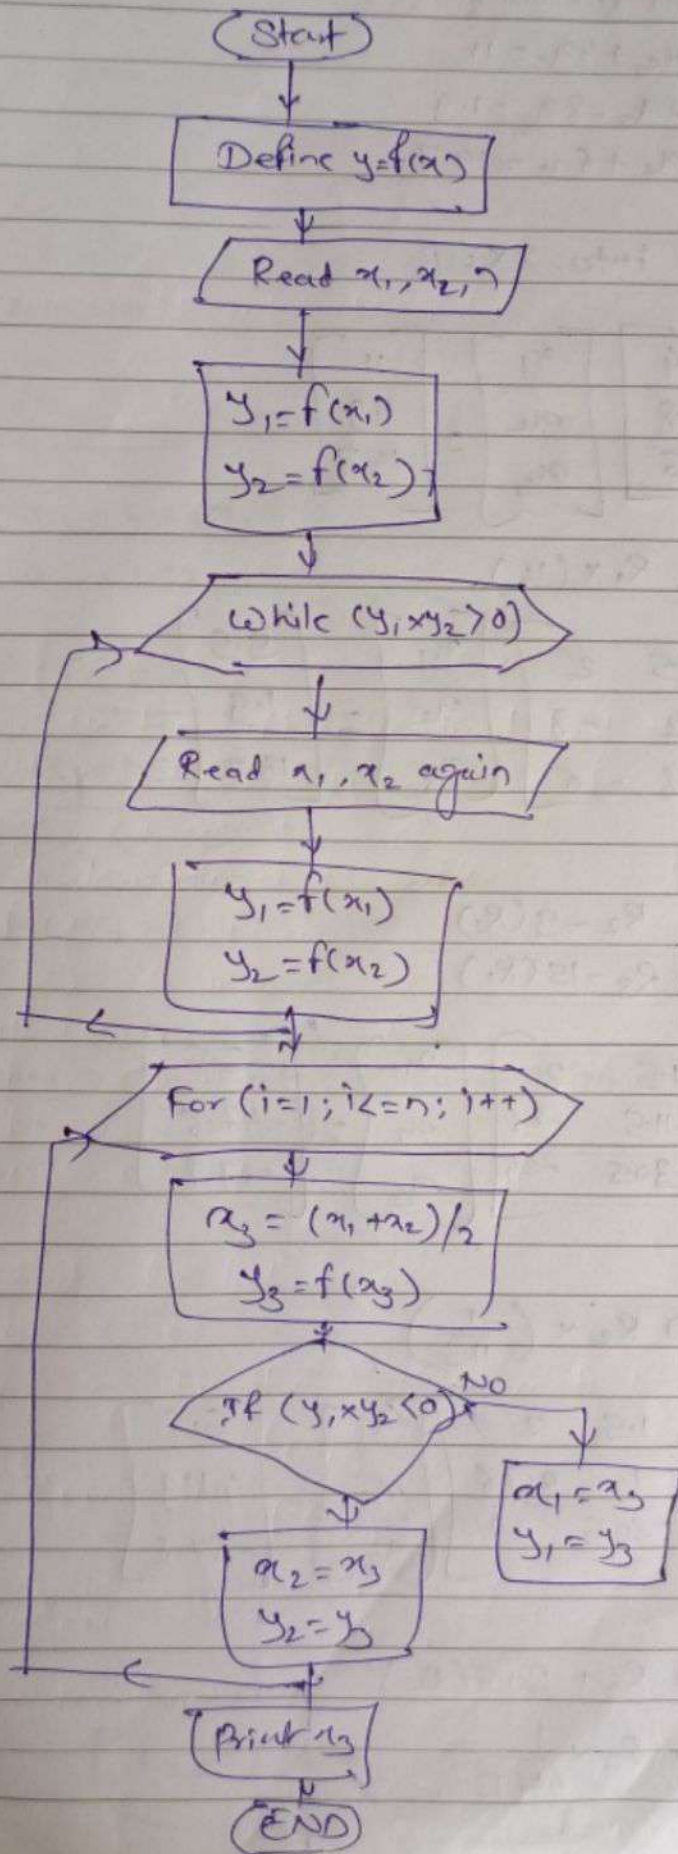 Start
Define y=f(x)
Read x₁, x₂, n
y₁=f(x₁)
y₂=f(x₂)
While (y₁×y₂>0)
Read x₁, x₂ again
y₁=f(x₁)
y₂=f(x₂)
For (i=1; i<=n; i++)
x₃ = (x₁+x₂)/2
y₃=f(x₃)
If (y₁×y₂<0)
NO
x₁=x₃
y₁=y₃
x₂=x₃
y₂=y₃
Print x₃
END